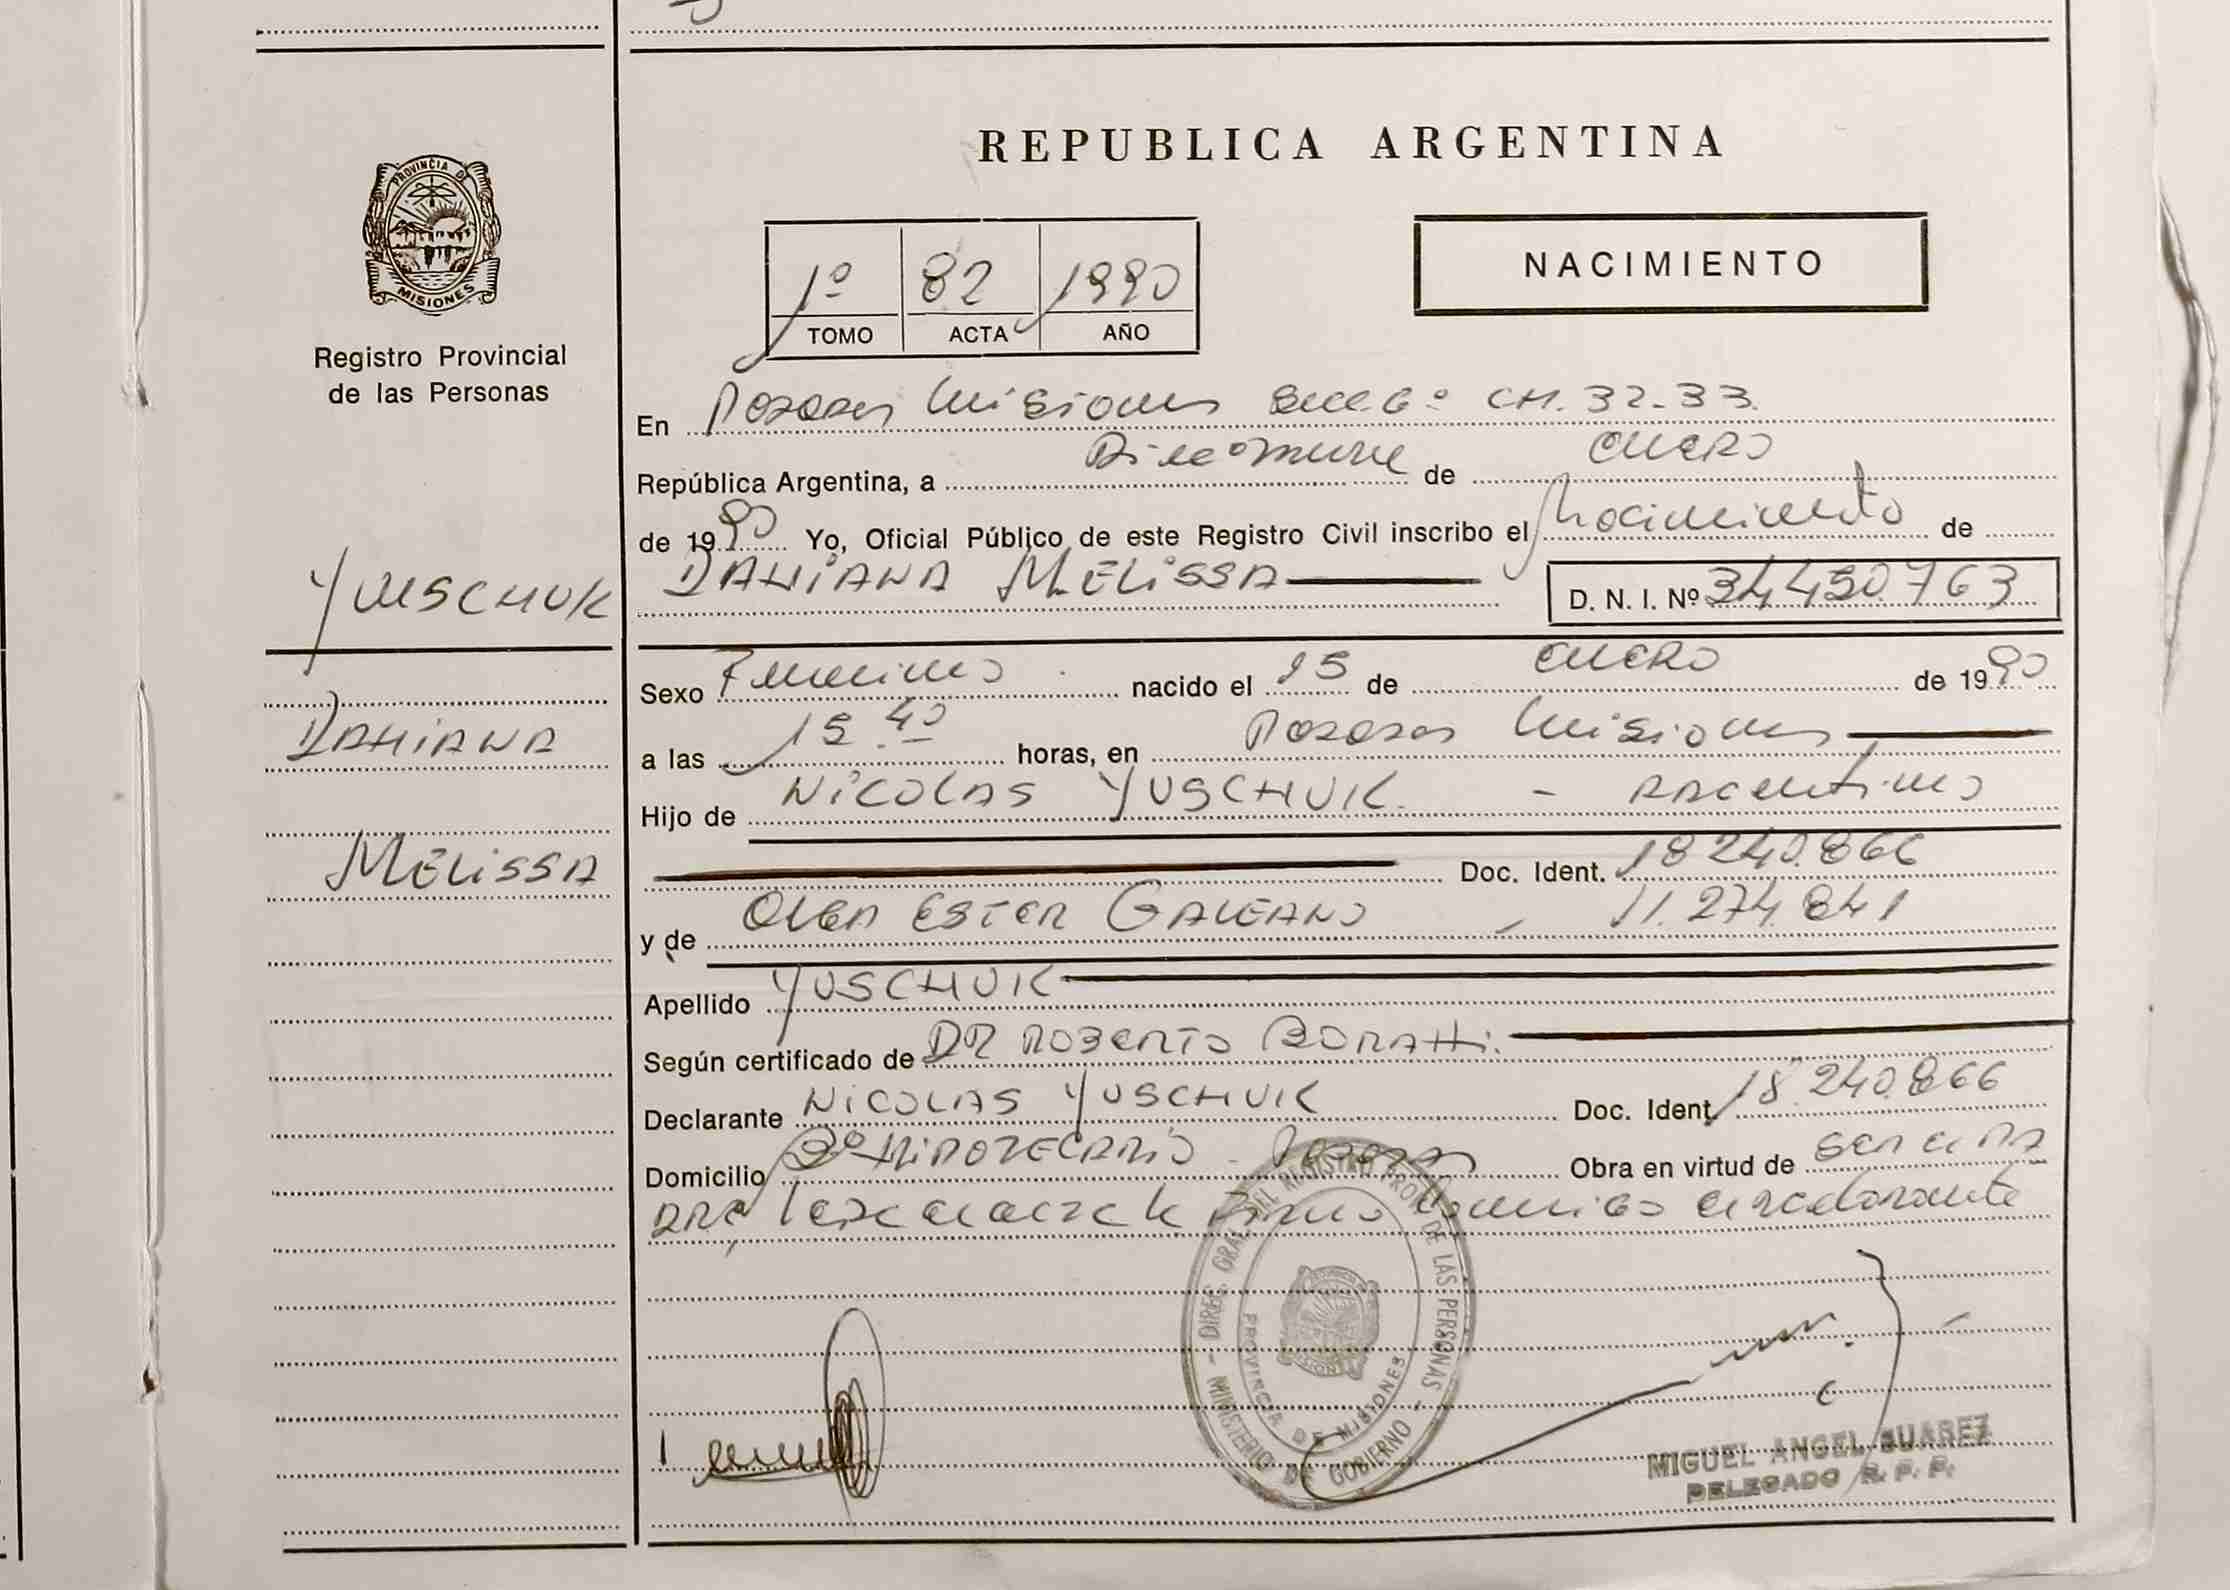 PROVINCIA DE
MISIONES
Registro Provincial
de las Personas
YUSCHUK
DAMIANA
MELISSA
REPUBLICA ARGENTINA
NACIMIENTO
1º 82 1990
TOMO ACTA AÑO
En Posadas Misiones Secc. 6º CH. 32-33.
República Argentina, a Diecinueve de enero
de 1990 Yo, Oficial Público de este Registro Civil inscribo el Nacimiento de
DAMIANA MELISSA D. N. I. Nº 34.450.763
Sexo Femenino nacido el 15 de enero de 1990
a las 15.40 horas, en Posadas Misiones
Hijo de NICOLAS YUSCHUK - Argentino
Doc. Ident. 18.240.866
y de OLGA ESTER GALEANO - 11.274.841
Apellido YUSCHUK
Según certificado de DR ROBERTO BORATTI.
Declarante NICOLAS YUSCHUK Doc. Ident. 18.240.866
Domicilio Bº HIPOTECARIO - Posadas Obra en virtud de
conmigo el declarante
DIREC. GRAL. DEL REGISTRO PROV. DE LAS PERSONAS - MINISTERIO DE GOBIERNO -
PROVINCIA DE MISIONES
MIGUEL ANGEL SUAREZ
DELEGADO R. P. P.